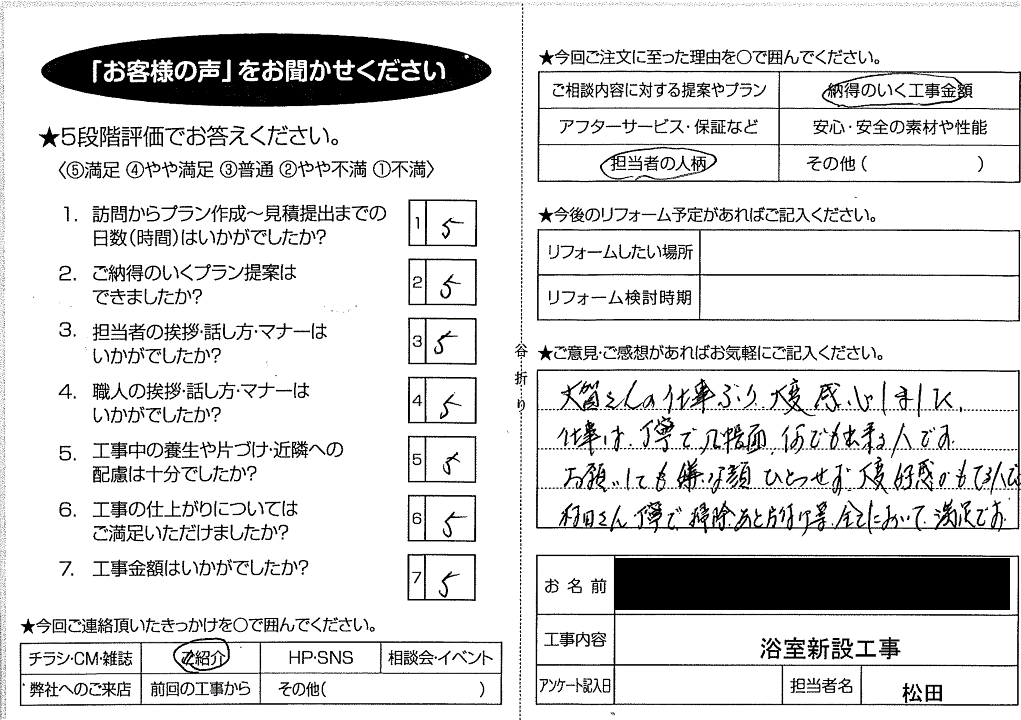 「お客様の声」をお聞かせください
★5段階評価でお答えください。
〈⑤満足 ④やや満足 ③普通 ②やや不満 ①不満〉
1. 訪問からプラン作成～見積提出までの
日数(時間)はいかがでしたか?
1 5
2. ご納得のいくプラン提案は
できましたか?
2 5
3. 担当者の挨拶・話し方・マナーは
いかがでしたか?
3 5
4. 職人の挨拶・話し方・マナーは
いかがでしたか?
4 5
5. 工事中の養生や片づけ・近隣への
配慮は十分でしたか?
5 5
6. 工事の仕上がりについては
ご満足いただけましたか?
6 5
7. 工事金額はいかがでしたか?
7 5
★今回ご連絡頂いたきっかけを○で囲んでください。
チラシ・CM・雑誌 ご紹介 HP・SNS 相談会・イベント
弊社へのご来店 前回の工事から その他( )
谷折り
★今回ご注文に至った理由を○で囲んでください。
ご相談内容に対する提案やプラン 納得のいく工事金額
アフターサービス・保証など 安心・安全の素材や性能
担当者の人柄 その他( )
★今後のリフォーム予定があればご記入ください。
リフォームしたい場所
リフォーム検討時期
★ご意見・ご感想があればお気軽にご記入ください。
さんの仕事ぶり、大変感心しました。
仕事は、丁寧で、几帳面、何でも出来る人です。
お願いしても嫌な顔ひとつせず、大変好感がもてる人で
村田さん丁寧で掃除あと片付け等、全てにおいて、満足です。
お名前
工事内容 浴室新設工事
アンケート記入日 担当者名 松田